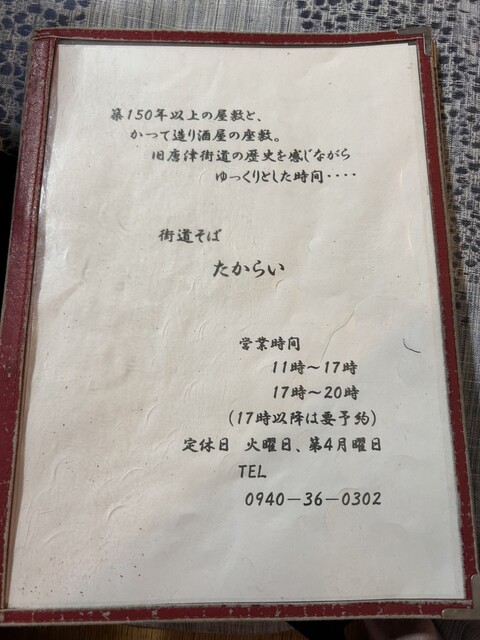 築150年以上の屋敷と、
かつて造り酒屋の座敷。
旧唐津街道の歴史を感じながら
ゆっくりとした時間・・・・
街道そば
たからい
営業時間
11時～17時
17時～20時
(17時以降は要予約)
定休日 火曜日、第4月曜日
TEL
0940－36－0302